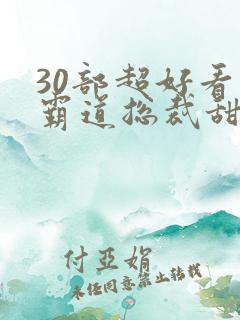 30部超好看
霸道总裁甜
付亚娟
未经同意禁止转载